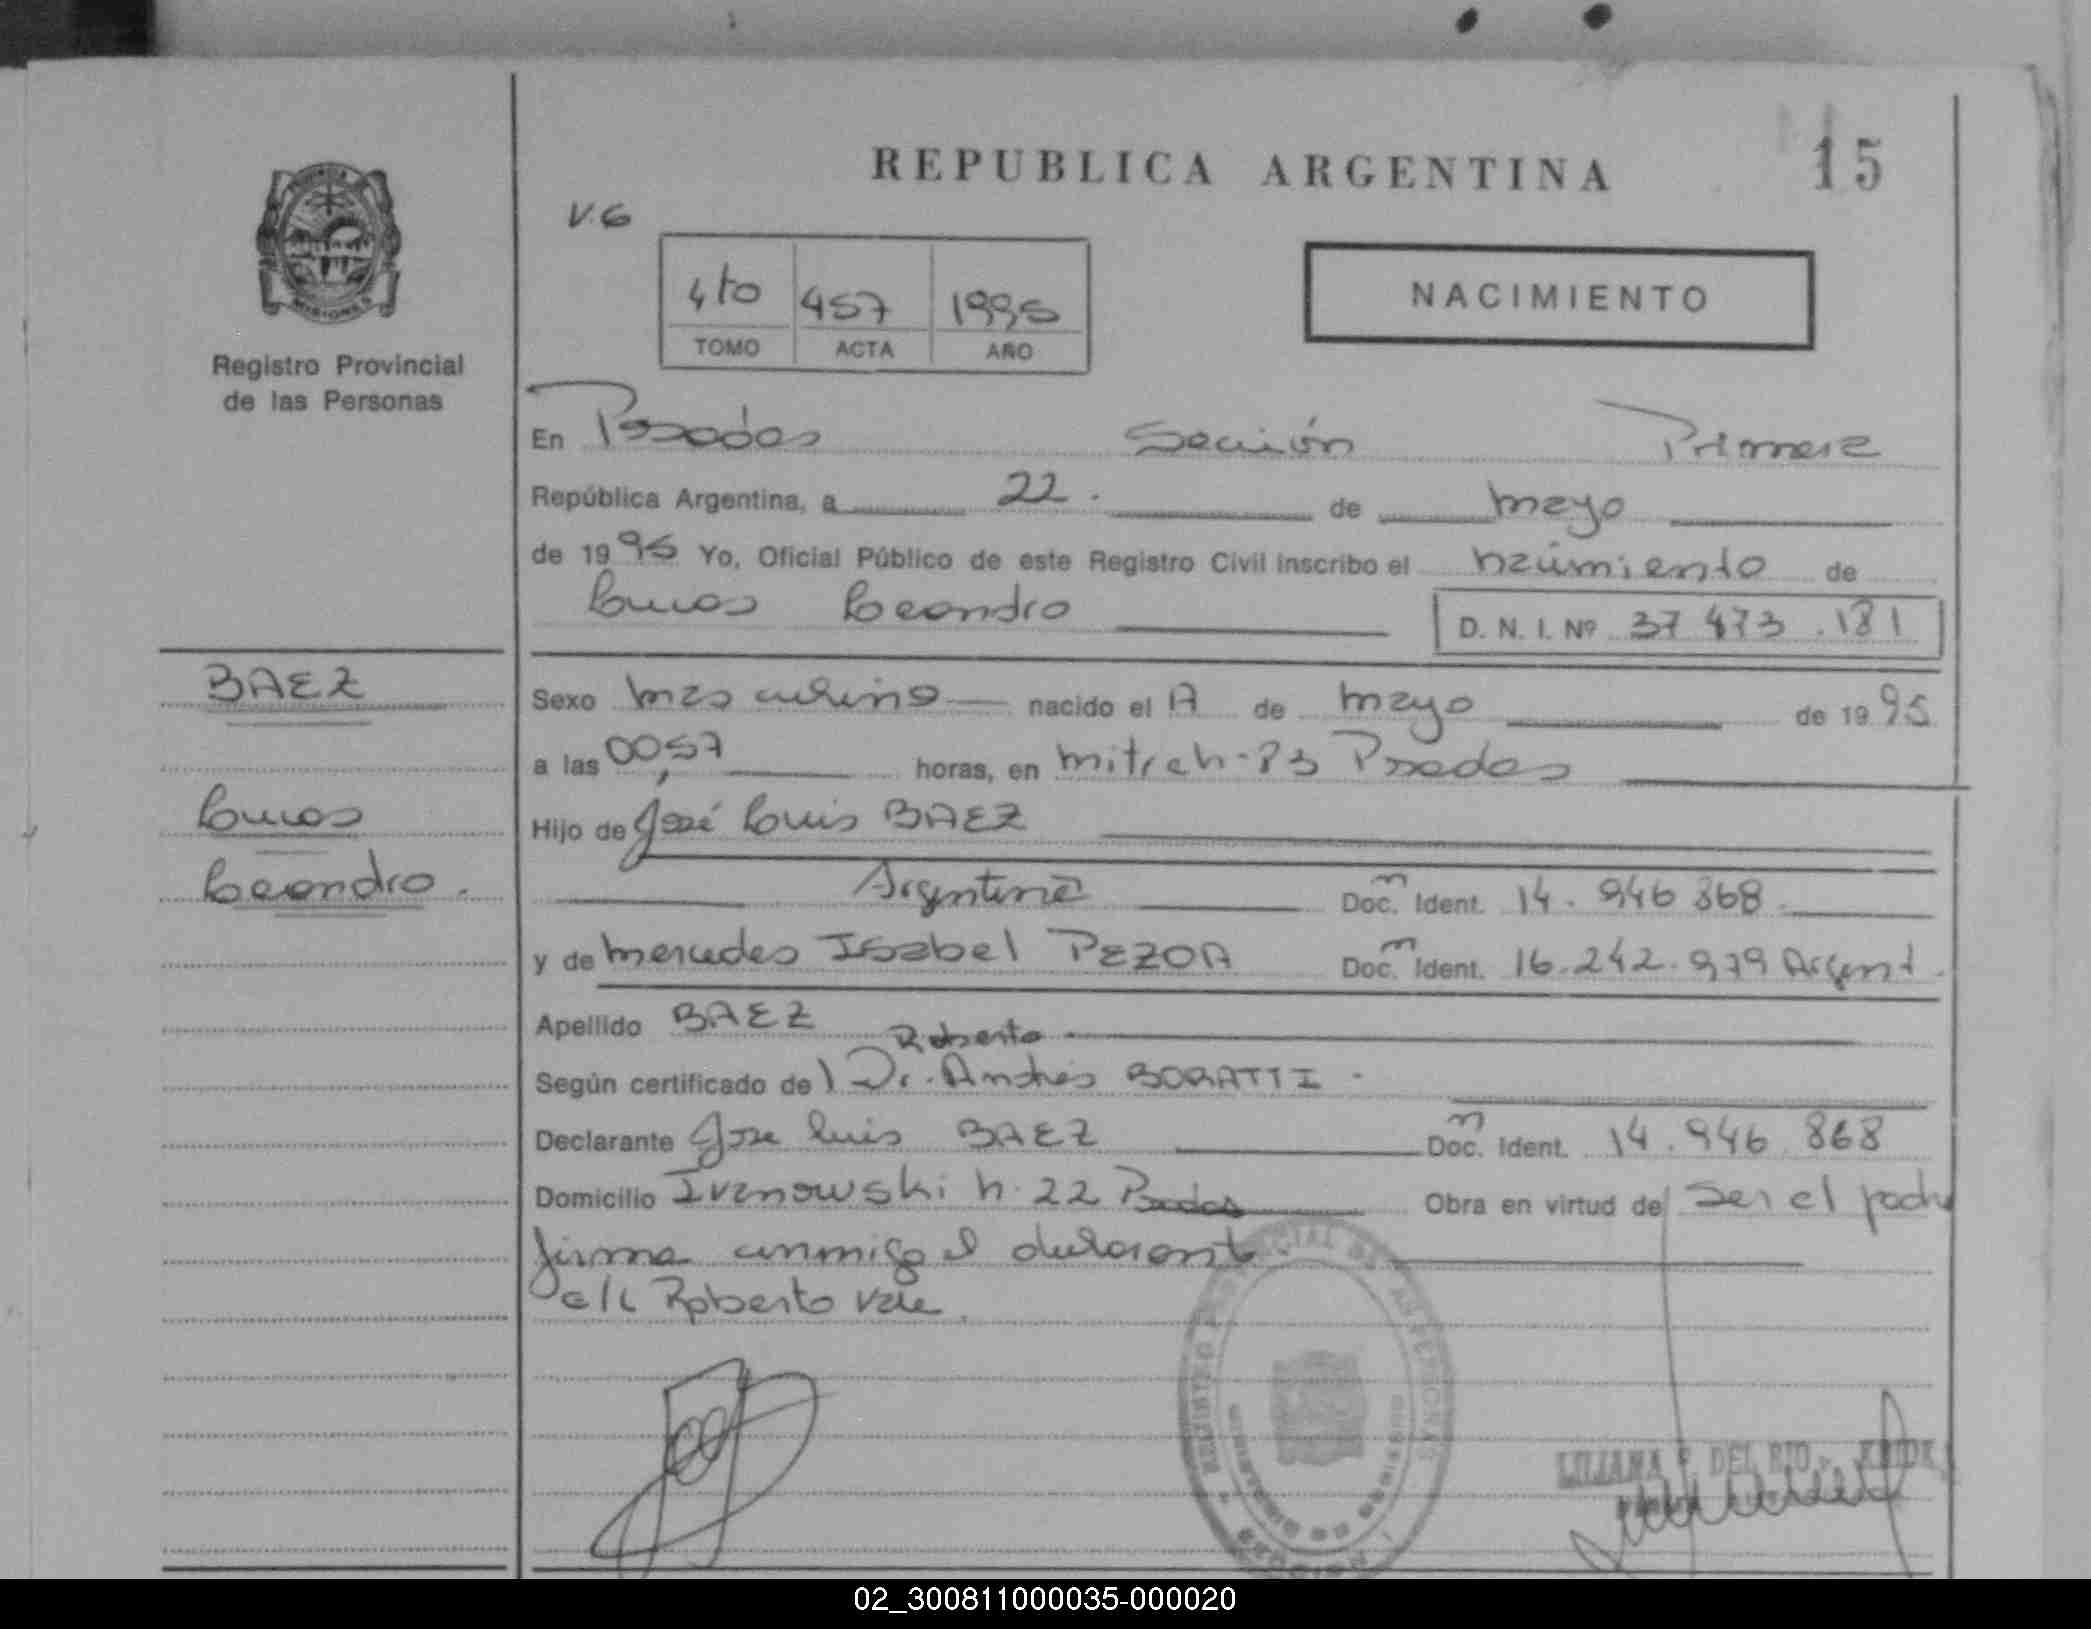 REPUBLICA ARGENTINA
15
V.6
4to 457 1995
TOMO ACTA AÑO
NACIMIENTO
MISIONES
Registro Provincial
de las Personas
En Posadas Sección Primera
República Argentina, a 22. de mayo
de 1995 Yo, Oficial Público de este Registro Civil inscribo el nacimiento de
Lucas Leandro
D. N. I. Nº 37 473.181
BAEZ
Lucas
Leandro.
Sexo masculino nacido el A de mayo de 1995
a las 00,57 horas, en mitre h-83 Posadas
Hijo de José Luis BAEZ
Argentina Doc. Ident. 14.946 868
y de mercedes Isabel PEZOA Doc. Ident. 16.242.979 Argent.
Apellido BAEZ
Roberto
Según certificado del Dr. Andrés BORATTI.
Declarante Jose Luis BAEZ Doc. Ident. 14.946.868
Domicilio Ivanowski h. 22 Posadas Obra en virtud de ser el padre
firma conmigo el declarante
e/l Roberto vale.
LILIANA DEL RIO
02_300811000035-000020